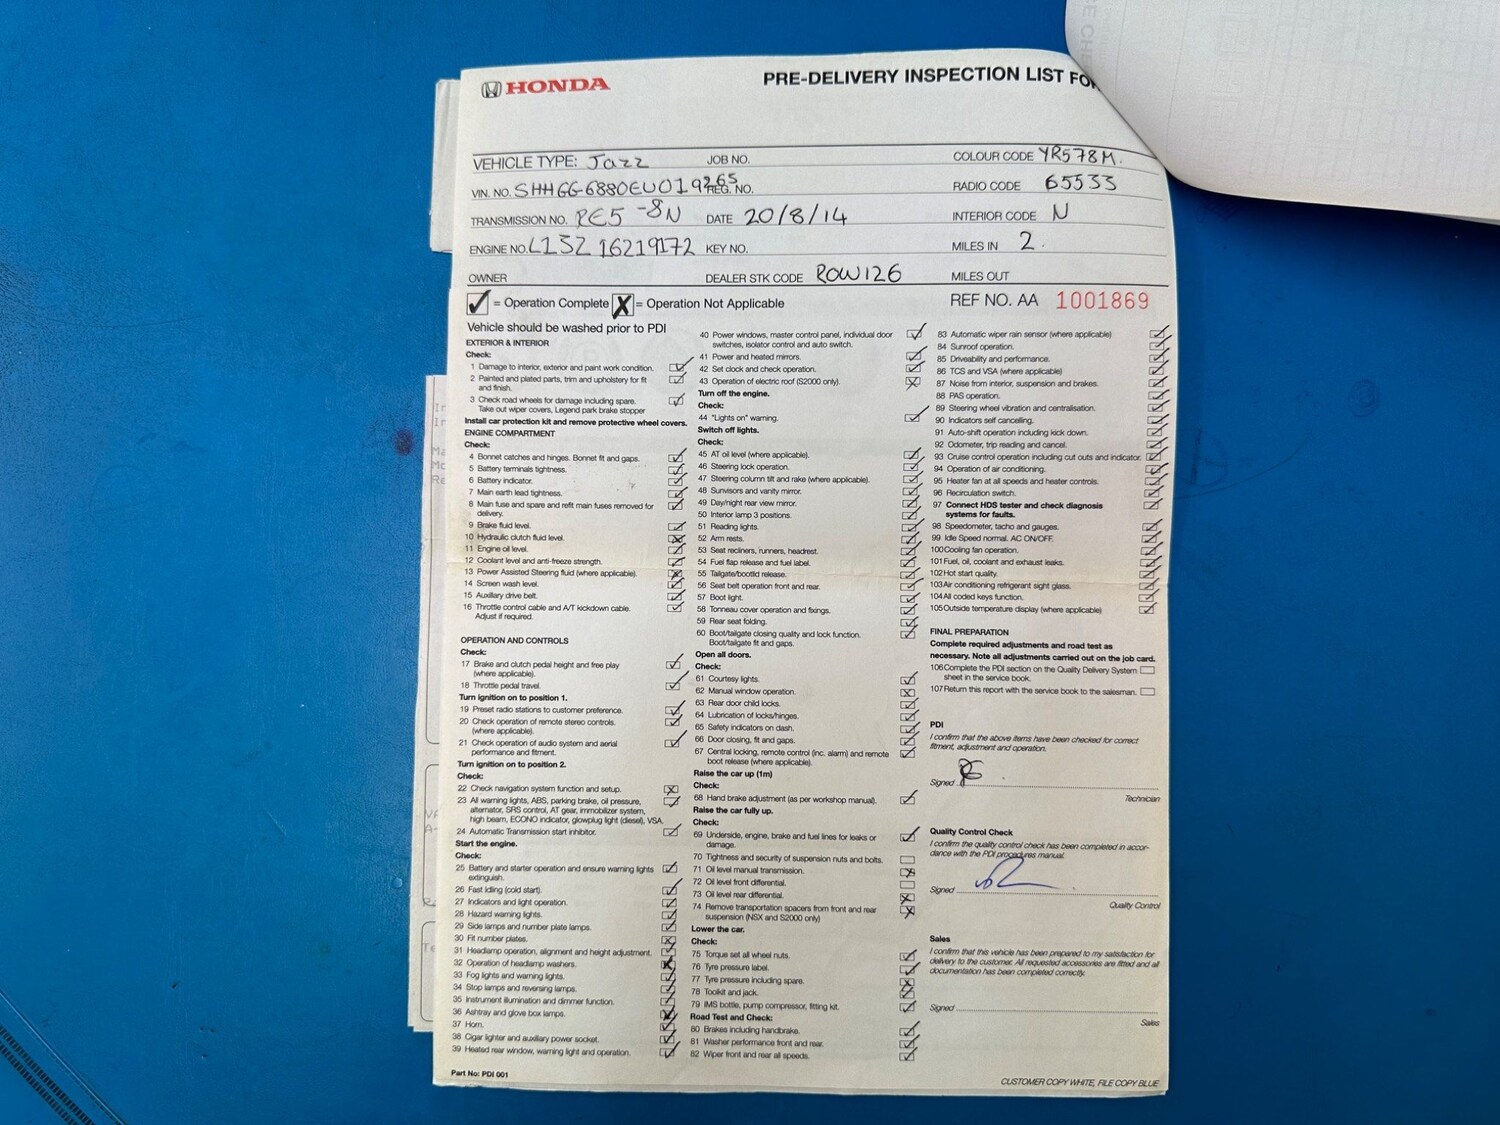 HONDA
PRE-DELIVERY INSPECTION LIST FOR
VEHICLE TYPE: Jazz JOB NO. COLOUR CODE YR578M.
VIN. NO. SHHGG6880EU019265 REG. NO. RADIO CODE 65533
TRANSMISSION NO. RE5 -8N DATE 20/8/14 INTERIOR CODE N
ENGINE NO. L13Z 16219172 KEY NO. MILES IN 2.
OWNER DEALER STK CODE ROW126 MILES OUT
= Operation Complete = Operation Not Applicable REF NO. AA 1001869
Vehicle should be washed prior to PDI
EXTERIOR & INTERIOR
Check:
1 Damage to interior, exterior and paint work condition.
2 Painted and plated parts, trim and upholstery for fit
and finish.
3 Check road wheels for damage including spare.
Take out wiper covers, Legend park brake stopper
Install car protection kit and remove protective wheel covers.
ENGINE COMPARTMENT
Check:
4 Bonnet catches and hinges. Bonnet fit and gaps.
5 Battery terminals tightness.
6 Battery indicator.
7 Main earth lead tightness.
8 Main fuse and spare and refit main fuses removed for
delivery.
9 Brake fluid level.
10 Hydraulic clutch fluid level.
11 Engine oil level.
12 Coolant level and anti-freeze strength.
13 Power Assisted Steering fluid (where applicable).
14 Screen wash level.
15 Auxiliary drive belt.
16 Throttle control cable and A/T kickdown cable.
Adjust if required.
OPERATION AND CONTROLS
Check:
17 Brake and clutch pedal height and free play
(where applicable).
18 Throttle pedal travel.
Turn ignition on to position 1.
19 Preset radio stations to customer preference.
20 Check operation of remote stereo controls.
(where applicable).
21 Check operation of audio system and aerial
performance and fitment.
Turn ignition on to position 2.
Check:
22 Check navigation system function and setup.
23 All warning lights, ABS, parking brake, oil pressure,
alternator, SRS control, AT gear, immobilizer system,
high beam, ECONO indicator, glowplug light (diesel), VSA.
24 Automatic Transmission start inhibitor.
Start the engine.
Check:
25 Battery and starter operation and ensure warning lights
extinguish.
26 Fast Idling (cold start).
27 Indicators and light operation.
28 Hazard warning lights.
29 Side lamps and number plate lamps.
30 Fit number plates.
31 Headlamp operation, alignment and height adjustment.
32 Operation of headlamp washers.
33 Fog lights and warning lights.
34 Stop lamps and reversing lamps.
35 Instrument illumination and dimmer function.
36 Ashtray and glove box lamps.
37 Horn.
38 Cigar lighter and auxiliary power socket.
39 Heated rear window, warning light and operation.
Part No: PDI 001
40 Power windows, master control panel, individual door
switches, isolator control and auto switch.
41 Power and heated mirrors.
42 Set clock and check operation.
43 Operation of electric roof (S2000 only).
Turn off the engine.
Check:
44 "Lights on" warning.
Switch off lights.
Check:
45 AT oil level (where applicable).
46 Steering lock operation.
47 Steering column tilt and rake (where applicable).
48 Sunvisors and vanity mirror.
49 Day/night rear view mirror.
50 Interior lamp 3 positions.
51 Reading lights.
52 Arm rests.
53 Seat recliners, runners, headrest.
54 Fuel flap release and fuel label.
55 Tailgate/bootlid release.
56 Seat belt operation front and rear.
57 Boot light.
58 Tonneau cover operation and fixings.
59 Rear seat folding.
60 Boot/tailgate closing quality and lock function.
Boot/tailgate fit and gaps.
Open all doors.
Check:
61 Courtesy lights.
62 Manual window operation.
63 Rear door child locks.
64 Lubrication of locks/hinges.
65 Safety indicators on dash.
66 Door closing, fit and gaps.
67 Central locking, remote control (inc. alarm) and remote
boot release (where applicable).
Raise the car up (1m)
Check:
68 Hand brake adjustment (as per workshop manual).
Raise the car fully up.
Check:
69 Underside, engine, brake and fuel lines for leaks or
damage.
70 Tightness and security of suspension nuts and bolts.
71 Oil level manual transmission.
72 Oil level front differential.
73 Oil level rear differential.
74 Remove transportation spacers from front and rear
suspension (NSX and S2000 only)
Lower the car.
Check:
75 Torque set all wheel nuts.
76 Tyre pressure label.
77 Tyre pressure including spare.
78 Toolkit and jack.
79 IMS bottle, pump compressor, fitting kit.
Road Test and Check:
80 Brakes including handbrake.
81 Washer performance front and rear.
82 Wiper front and rear all speeds.
83 Automatic wiper rain sensor (where applicable)
84 Sunroof operation.
85 Driveability and performance.
86 TCS and VSA (where applicable)
87 Noise from interior, suspension and brakes.
88 PAS operation.
89 Steering wheel vibration and centralisation.
90 Indicators self cancelling.
91 Auto-shift operation including kick down.
92 Odometer, trip reading and cancel.
93 Cruise control operation including cut outs and indicator.
94 Operation of air conditioning.
95 Heater fan at all speeds and heater controls.
96 Recirculation switch.
97 Connect HDS tester and check diagnosis
systems for faults.
98 Speedometer, tacho and gauges.
99 Idle Speed normal. AC ON/OFF.
100 Cooling fan operation.
101 Fuel, oil, coolant and exhaust leaks.
102 Hot start quality.
103 Air conditioning refrigerant sight glass.
104 All coded keys function.
105 Outside temperature display (where applicable)
FINAL PREPARATION
Complete required adjustments and road test as
necessary. Note all adjustments carried out on the job card.
106 Complete the PDI section on the Quality Delivery System
sheet in the service book.
107 Return this report with the service book to the salesman.
PDI
I confirm that the above items have been checked for correct
fitment, adjustment and operation.
Signed
Technician
Quality Control Check
I confirm the quality control check has been completed in accor-
dance with the PDI procedures manual.
Signed
Quality Control
Sales
I confirm that this vehicle has been prepared to my satisfaction for
delivery to the customer. All requested accessories are fitted and all
documentation has been completed correctly.
Signed
Sales
CUSTOMER COPY WHITE, FILE COPY BLUE